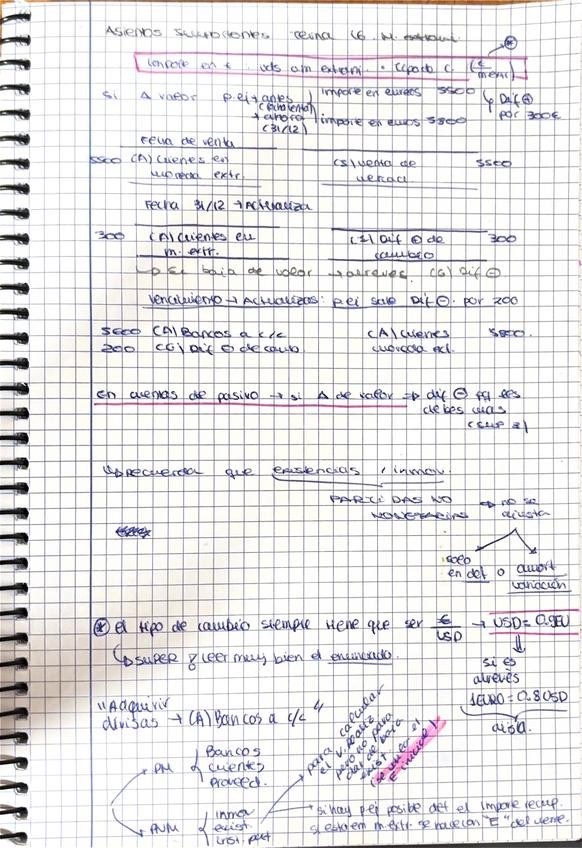 Asientos situaciones tema 16. M. extranj.
Importe en € = uds a.m extranj. · tipo de C. (€/m extr)
Si Δ valor p.ej antes (aumenta) | importe en euros 5500
→ ahora (31/12) | importe en euros 5800
↳ Dif ⊕ por 300€
Fecha de venta
5500 (A) Clientes en moneda extr. (I) Venta de mercad. 5500
Fecha 31/12 → Actualiza
300 (A) Clientes en m. extr. (I) Dif ⊕ de cambio 300
↳ Si baja de valor → al revés. (G) Dif ⊖
Vencimiento → Actualizas: p.ej sale Dif ⊖ por 200
5600 (A) Bancos a c/c (A) Clientes moneda ext. 5800.
200 (G) Dif ⊖ de camb.
En cuentas de pasivo → si Δ de valor ⇒ dif ⊖ pq les debes más
↳ recuerda que existencias / inmov.
PARTIDAS NO MONETARIAS ⇒ no se ajusta
solo en det o amort
variación
⊛ el tipo de cambio siempre tiene que ser €/USD →
↳ SUPER ! leer muy bien el enunciado.
si es al revés
1 EURO = 0.8 USD
"Adquirir divisas → (A) Bancos a c/c"
PM { Bancos
clientes
proveed.
PNM { inmov
exist.
inst. pat
para calcular el v. realiz
pero no para dar de baja exist
→ si hay p.ej posible det el importe recup.
si esta en m. extr. se hace con "E" del cierre.